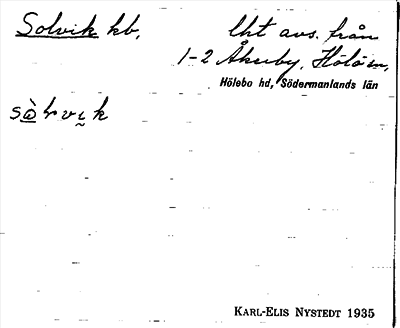 Solvik kb, lht avs. från
1-2 Åkerby, Hölö sn,
Hölebo hd, Södermanlands län
KARL-ELIS NYSTEDT 1935